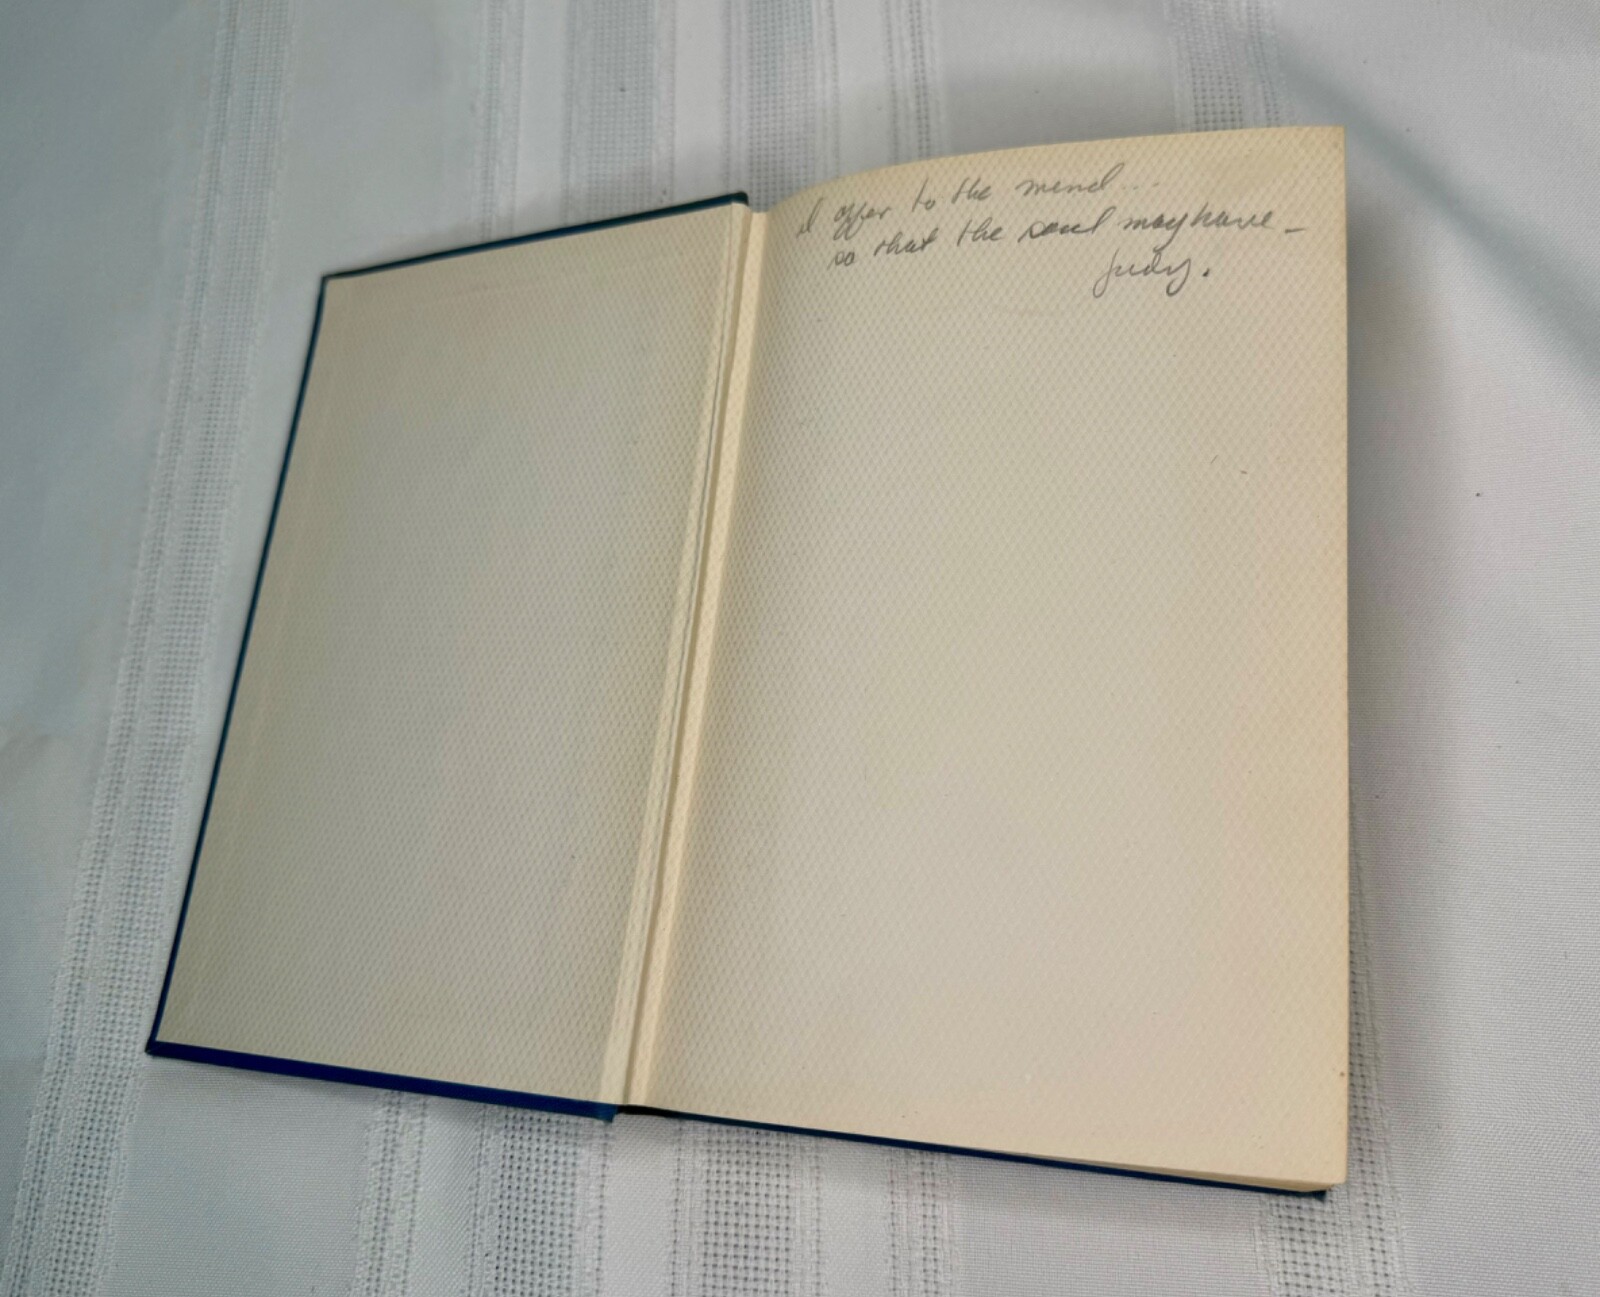 I offer to the mind...
so that the soul may have –
Judy.